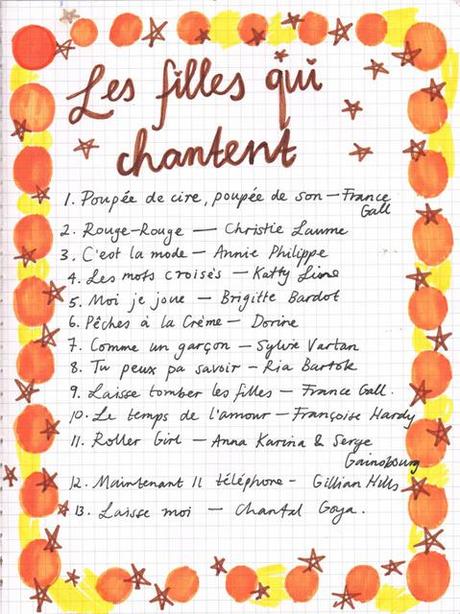 Les filles qui
chantent
1. Poupée de cire, poupée de son – France
Gall
2. Rouge-Rouge — Christie Laume
3. C'est la mode – Annie Philippe
4. Les mots croisés – Katty Line
5. Moi je joue – Brigitte Bardot
6. Pêches à la Crème – Dorine
7. Comme un garçon – Sylvie Vartan
8. Tu peux pa savoir – Ria Bartok
9. Laisse tomber les filles – France Gall.
10. Le temps de l'amour – Françoise Hardy
11. Roller Girl – Anna Karina & Serge
Gainsbourg
12. Maintenant Il téléphone – Gillian Hills
13. Laisse moi – Chantal Goya.